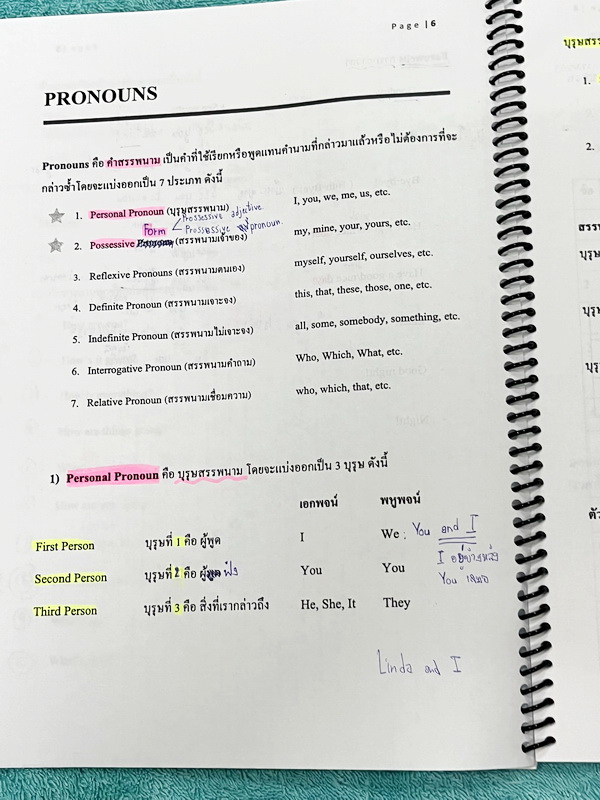 Page | 6
PRONOUNS
Pronouns คือ คำสรรพนาม เป็นคำที่ใช้เรียกหรือพูดแทนคำนามที่กล่าวมาแล้วหรือไม่ต้องการที่จะ
กล่าวซ้ำโดยจะแบ่งออกเป็น 7 ประเภท ดังนี้
1. Personal Pronoun (บุรุษสรรพนาม) I, you, we, me, us, etc.
Form Prossessive adjective.
Prossessive pronoun.
2. Possessive Pronoun (สรรพนามเจ้าของ) my, mine, your, yours, etc.
3. Reflexive Pronouns (สรรพนามตนเอง) myself, yourself, ourselves, etc.
4. Definite Pronoun (สรรพนามเจาะจง) this, that, these, those, one, etc.
5. Indefinite Pronoun (สรรพนามไม่เจาะจง) all, some, somebody, something, etc.
6. Interrogative Pronoun (สรรพนามคำถาม) Who, Which, What, etc.
7. Relative Pronoun (สรรพนามเชื่อมความ) who, which, that, etc.
1) Personal Pronoun คือ บุรุษสรรพนาม โดยจะแบ่งออกเป็น 3 บุรุษ ดังนี้
เอกพจน์ พหูพจน์
First Person บุรุษที่ 1 คือ ผู้พูด I We : You and I
I อยู่ข้างหลัง
Second Person บุรุษที่ 2 คือ ผู้พูด ฟัง You You
You เสมอ
Third Person บุรุษที่ 3 คือ สิ่งที่เรากล่าวถึง He, She, It They
Linda and I
บุรุษสรร
1.
2.
สรร
บุรุษ
บุรุ
บุรุ
ตัว